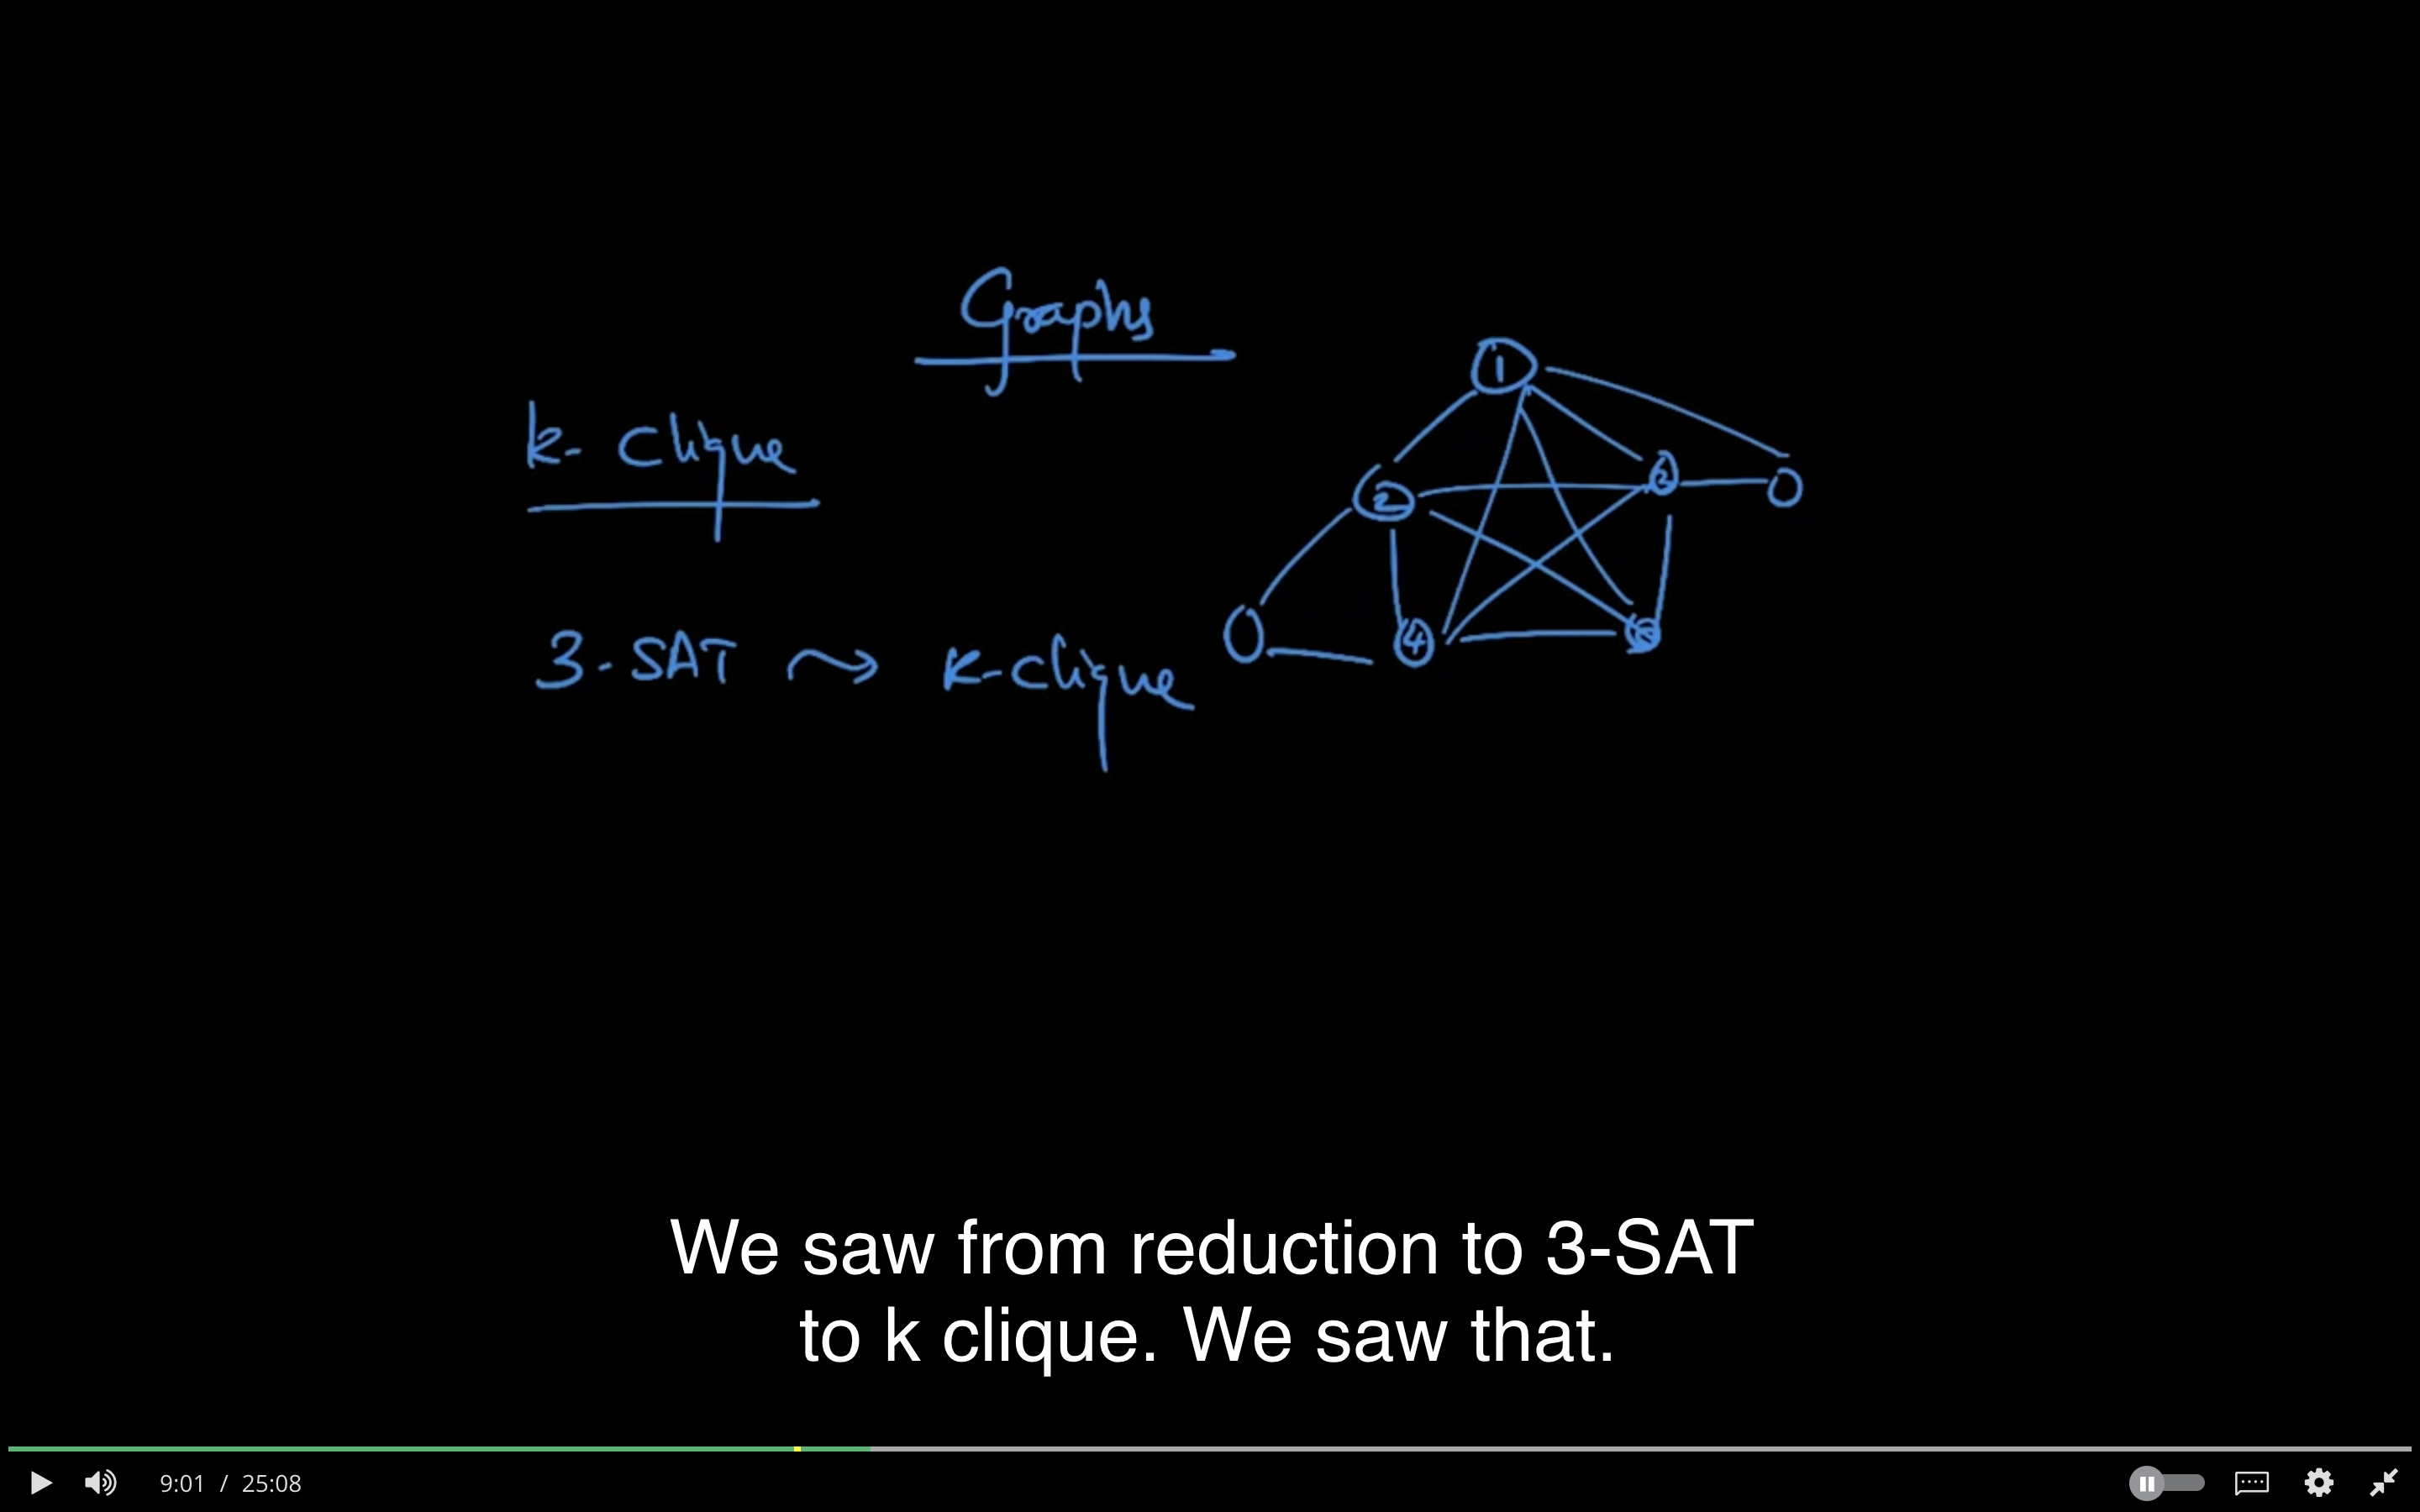 Graphs
k- Clique
1
2
2
4
3-SAT ⇝ k-clique
We saw from reduction to 3-SAT
to k clique. We saw that.
9:01 / 25:08